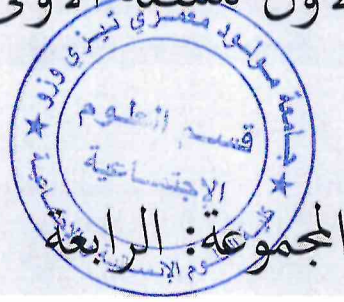 الأول للسنة الأولى
جامعة مولود معمري تيزي وزو
قسم العلوم
الإجتماعية
كلية العلوم الإنسانية والاجتماعية
المجموعة: الرابعة